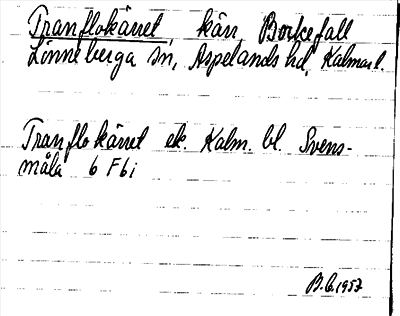 Tranflokärret, kärr, Borkefall
Lönneberga sn, Aspelands hd, Kalmar l.
Tranflokärret ek. Kalm. bl. Svens-
måla 6 F 6 i
B.G. 1957